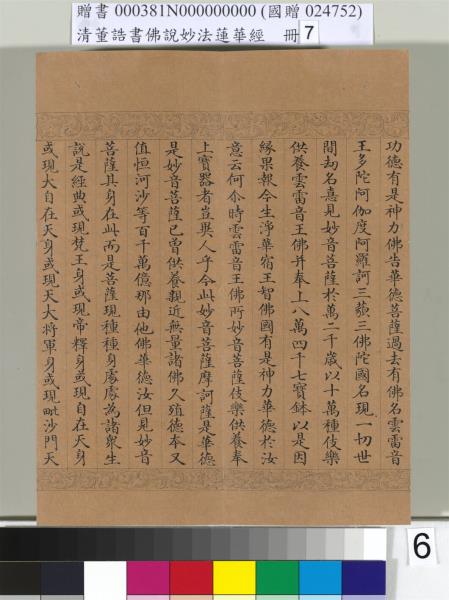 贈書 000381N000000000 (國贈 024752)
清董誥書佛說妙法蓮華經 冊 7
功德有是神力佛告華德菩薩過去有佛名雲雷音
王多陀阿伽度阿羅訶三藐三佛陀國名現一切世
間劫名憙見妙音菩薩於萬二千歲以十萬種伎樂
供養雲雷音王佛并奉上八萬四千七寶鉢以是因
緣果報今生淨華宿王智佛國有是神力華德於汝
意云何尒時雲雷音王佛所妙音菩薩伎樂供養奉
上寶器者豈異人乎今此妙音菩薩摩訶薩是華德
是妙音菩薩已曾供養親近無量諸佛久殖德本又
值恒河沙等百千萬億那由他佛華德汝但見妙音
菩薩其身在此而是菩薩現種種身處處為諸衆生
說是經典或現梵王身或現帝釋身或現自在天身
或現大自在天身或現天大將軍身或現毗沙門天
6